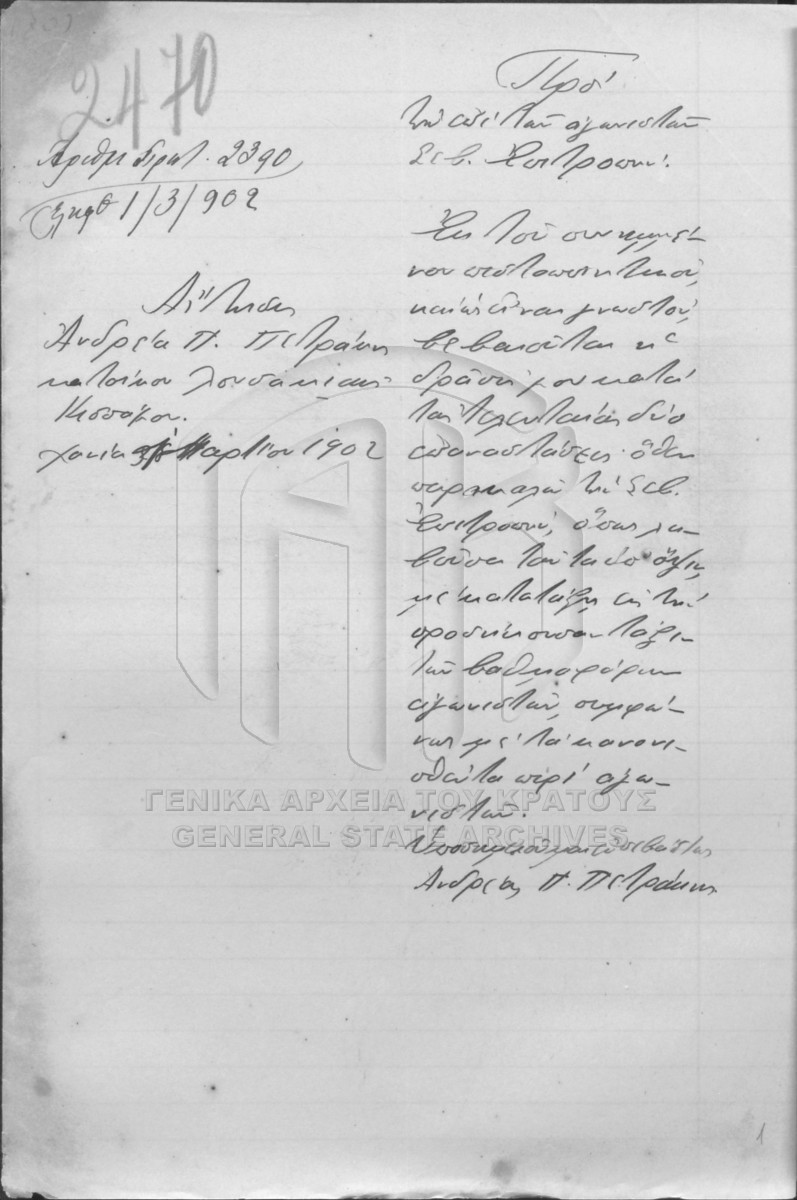 2470
Αριθμ. Πρωτ. 2390
ἐλήφθ 1/3/902
Αἴτησις
Ἀνδρέα Π. Πετράκη
κατοίκου Λουσακιαῖς
Κισσάμου.
Χανιά Μαρτίου 1902
Πρὸς
τὴν ἐπὶ τῶν ἀγωνιστῶν
Σεβ. Ἐπιτροπήν.
Ἐκ τοῦ συνημμέ-
νου πιστοποιητικοῦ,
καὶ ὡς εἶναι γνωστόν,
βεβαιοῦται ἡ
δρᾶσίς μου κατὰ
τὰς τελευταίας δύο
ἐπαναστάσεις· ὅθεν
παρακαλῶ τὴν Σεβ.
Ἐπιτροπήν, ὅπως λα-
βοῦσα ταῦτα ὑπ' ὄψιν,
μὲ κατατάξῃ εἰς τὴν
προσήκουσαν τάξιν
τῶν βαθμοφόρων
ἀγωνιστῶν, συμφώ-
νως μὲ τὰ κανονι-
σθέντα περὶ ἀγω-
νιστῶν.
Ὑποσημειοῦμαι εὐσεβάστως
Ἀνδρέας Π. Πετράκης
ΓΕΝΙΚΑ ΑΡΧΕΙΑ ΤΟΥ ΚΡΑΤΟΥΣ
GENERAL STATE ARCHIVES
1